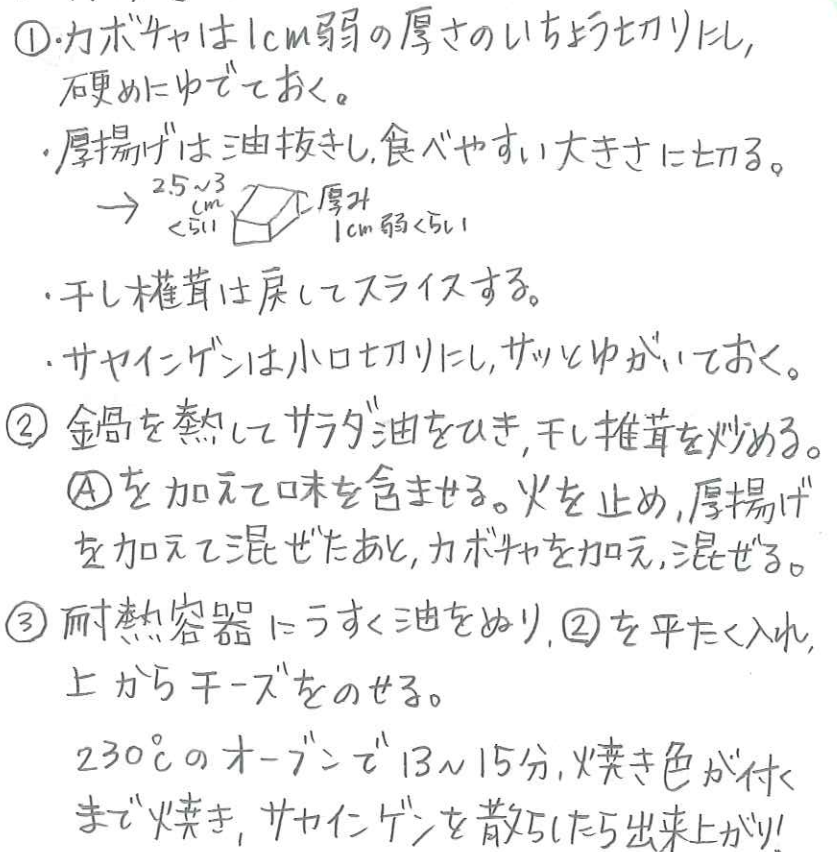 ①・カボチャは1cm弱の厚さのいちょう切りにし,
硬めにゆでておく。
・厚揚げは油抜きし,食べやすい大きさに切る。
→ 2.5~3cmくらい 厚み1cm弱くらい
・干し椎茸は戻してスライスする。
・サヤインゲンは小口切りにし,サッとゆがいておく。
② 鍋を熱してサラダ油をひき,干し椎茸を炒める。
Ⓐを加えて味を含ませる。火を止め,厚揚げ
を加えて混ぜたあと,カボチャを加え,混ぜる。
③ 耐熱容器にうすく油をぬり,②を平たく入れ,
上からチーズをのせる。
230℃のオーブンで13~15分,焼き色が付く
まで焼き,サヤインゲンを散らしたら出来上がり!